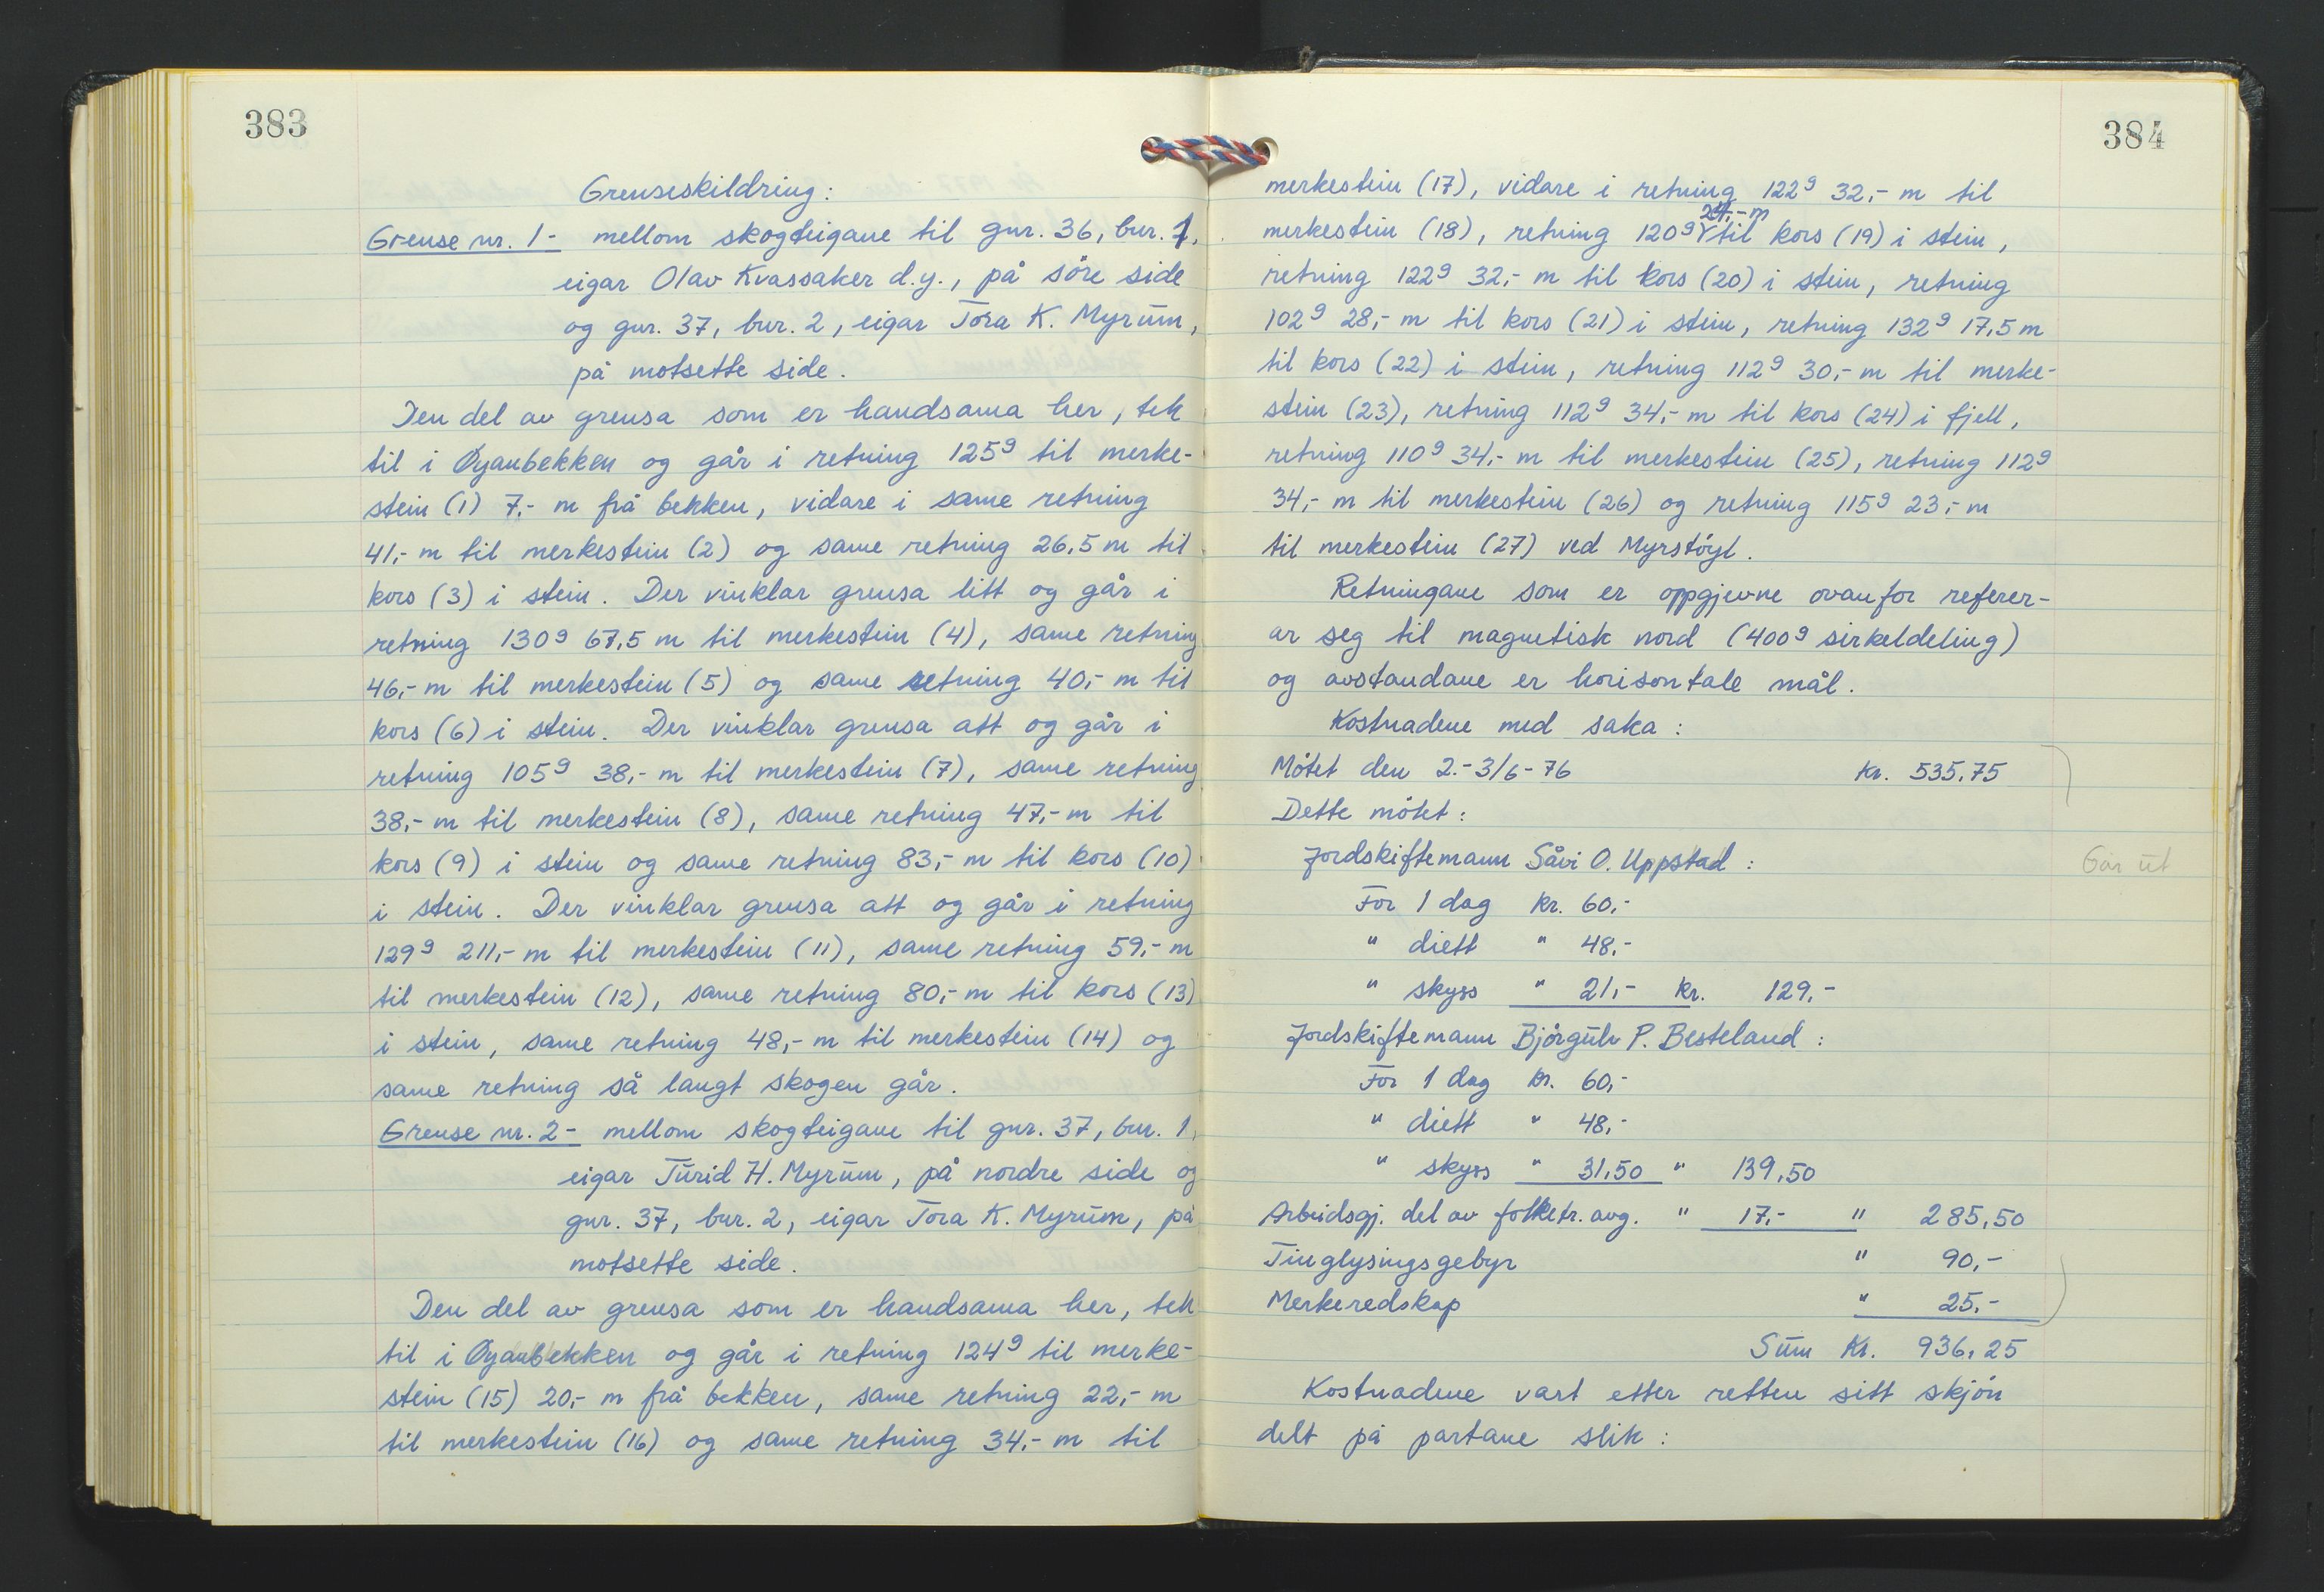 383
Grenseskildring:
Grense nr. 1- mellom skogteigane til gnr. 36, bnr. 1,
eigar Olav Kvassaker d.y., på söre side
og gnr. 37, bnr. 2, eigar Tora K. Myrum,
på motsette side.
Den del av grensa som er handsama her, tek
til i Øyanbekken og går i retning 125g til merke-
stein (1) 7,- m frå bekken, vidare i same retning
41,- m til merkestein (2) og same retning 26,5 m til
kors (3) i stein. Der vinklar grensa litt og går i
retning 130g 67,5 m til merkestein (4), same retning
46,- m til merkestein (5) og same retning 40,- m til
kors (6) i stein. Der vinklar grensa att og går i
retning 105g 38,- m til merkestein (7), same retning
38,- m til merkestein (8), same retning 47,- m til
kors (9) i stein og same retning 83,- m til kors (10)
i stein. Der vinklar grensa att og går i retning
129g 211,- m til merkestein (11), same retning 59,- m
til merkestein (12), same retning 80,- m til kors (13)
i stein, same retning 48,- m til merkestein (14) og
same retning så langt skogen går.
Grense nr. 2- mellom skogteigane til gnr. 37, bnr. 1,
eigar Turid H. Myrum, på nordre side og
gnr. 37, bnr. 2, eigar Tora K. Myrum, på
motsette side.
Den del av grensa som er handsama her, tek
til i Øyanbekken og går i retning 124g til merke-
stein (15) 20,- m frå bekken, same retning 22,- m
til merkestein (16) og same retning 34,- m til
384
merkestein (17), vidare i retning 122g 32,- m til
24,- m
merkestein (18), retning 120g til kors (19) i stein,
retning 122g 32,- m til kors (20) i stein, retning
102g 28,- m til kors (21) i stein, retning 132g 17,5 m
til kors (22) i stein, retning 112g 30,- m til merke-
stein (23), retning 112g 34,- m til kors (24) i fjell,
retning 110g 34,- m til merkestein (25), retning 112g
34,- m til merkestein (26) og retning 115g 23,- m
til merkestein (27) ved Myrstöyl.
Retningane som er oppgjevne ovanfor referer-
ar seg til magnetisk nord (400g sirkeldeling)
og avstandane er horisontale mål.
Kostnadene med saka:
Mötet den 2.-3/6-76 kr. 535,75
Dette mötet:
Jordskiftemann Såvi O. Uppstad:
Går ut
For 1 dag kr. 60,-
" diett " 48,-
" skyss " 21,- kr. 129,-
Jordskiftemann Björgulv P. Besteland:
For 1 dag kr. 60,-
" diett " 48,-
" skyss " 31,50 " 139,50
Arbeidsgj. del av folketr. avg. " 17,- " 285,50
Tinglysingsgebyr " 90,-
Merkeredskap " 25,-
Sum Kr. 936,25
Kostnadene vart etter retten sitt skjön
delt på partane slik: